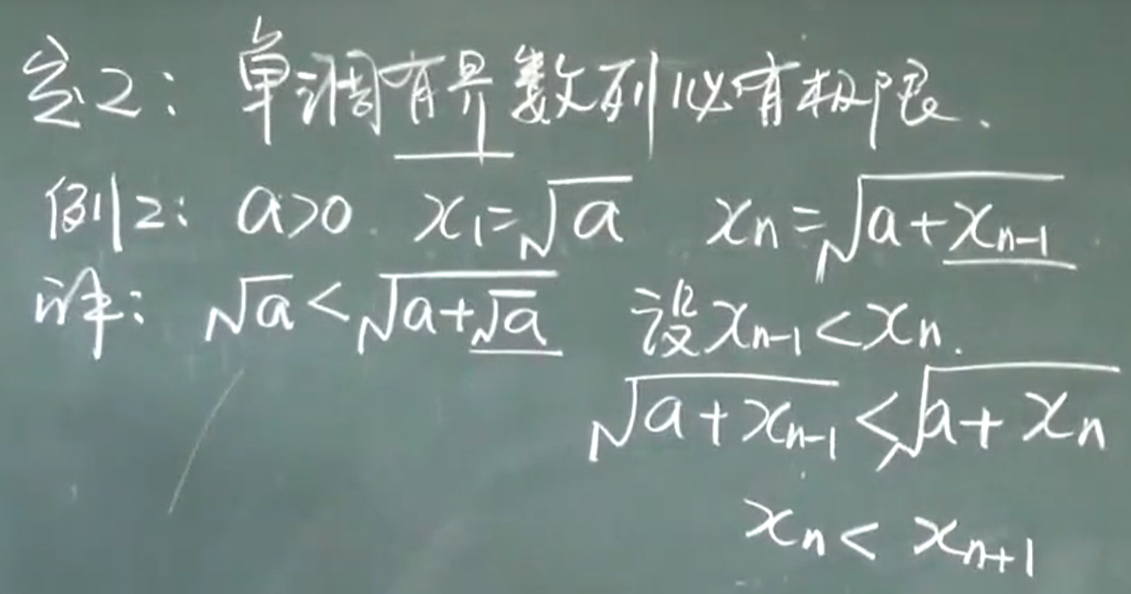 定2: 单调有界数列必有极限.
例2: a>0. x₁=√a xₙ=√(a+xₙ₋₁)
证: √a<√(a+√a) 设xₙ₋₁<xₙ.
√(a+xₙ₋₁)<√(a+xₙ)
xₙ<xₙ₊₁